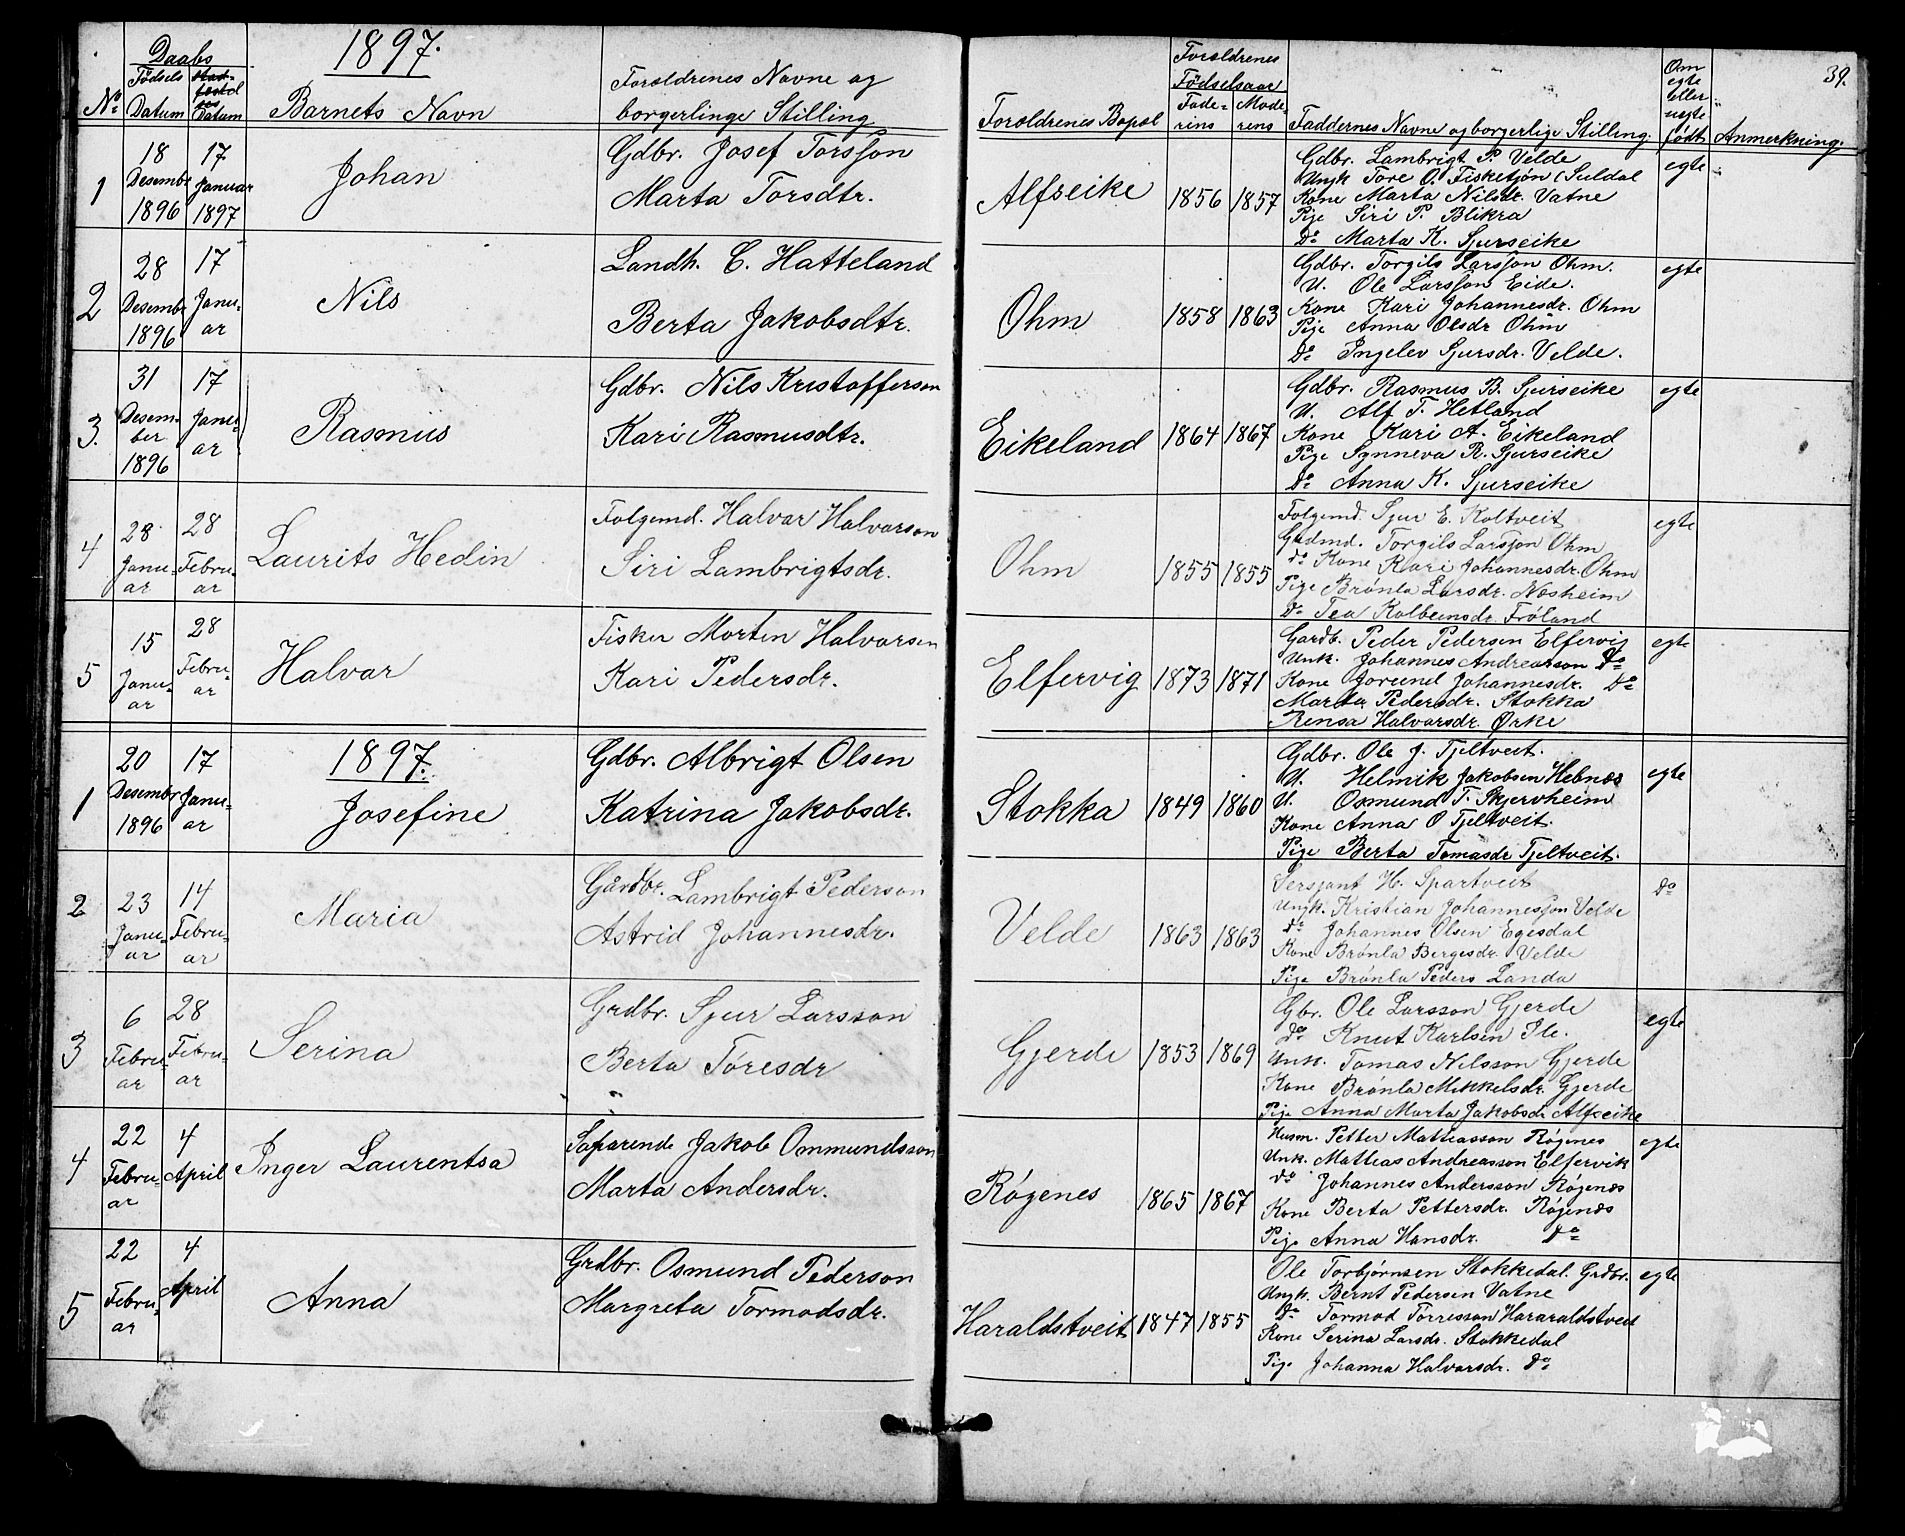 1897.
39.
No Fødsels Datum Daabs Datum Barnets Navn Forældrenes Navne og borgerlinge Stilling
Forældrenes Bopæl Forældrenes Fødselsaar Faderens Moderens Faddernes Navne og borgerlige Stilling. Om egte eller uegte født Anmerkning.
1 18 Desembr 1896 17 Januar 1897 Johan
Gdbr. Josef Torsson
Marta Torsdtr.
Alfseike 1856 1857
Gdbr. Lambrigt P. Velde
Ungk Tore O. Fisketjøn (Suldal
Kone Marta Nilsdr. Vatne
Pige Siri P. Blikra
Do Marta K. Sjurseike
egte
2 28 Desembr 1896 17 Januar Nils
Landh. C. Hatteland
Berta Jakobsdtr.
Ohm 1858 1863
Gdbr. Torgils Larsson Ohm.
U. Ole Larsson Eide.
Kone Kari Johannesdr. Ohm
Pije Anna Olsdr Ohm
Do Ingelev Sjursdr. Velde.
egte
3. 31 Desember 1896 17 Januar Rasmus
Gdbr. Nils Kristofferson
Kari Rasmusdtr.
Eikeland 1864 1867
Gdbr. Rasmus B. Sjurseike
U. Alf T. Hetland
Kone Kari A. Eikeland
Pige Synneva R. Sjurseike
Do Anna K. Sjurseike
egte
4 28 Januar 28 Februar Laurits Hedin
Folgemd. Halvar Halvarson
Siri Lambrigtsdr.
Ohm 1855 1855
Folgemd. Sjur E. Koltveit
Gardmd. Torgils Larsson Ohm
do Kone Kari Johannesdr. Ohm
Pige Brønla Larsdr. Næsheim
Do Tea Kolbeinsdr. Frøland
egte
5 15 Januar 28 Februar Halvar
Fisker Morten Halvarsen
Kari Pedersdr.
Elfervig 1873 1871
Gardb. Peder Pedersen Elfervig
Unk. Johannes Andreasson Do
Kone Jorund Johannesdr. Do
Marta Pedersdr. Stokka
Rensa Halvarsdr. Ørke
egte
1897.
1 20 Desembr 1896 17 Januar Josefine
Gdbr. Albrigt Olsen
Katrina Jakobsdr.
Stokka 1849 1860
Gdbr. Ole J. Tjeltveit.
U. Helmik Jakobsen Hebnæs
U. Osmund T. Skjervheim
Kone Anna O Tjeltveit.
Pige Berta Tomasdr Tjeltveit.
egte
2 23 Januar 14 Februar Maria
Gårdbr. Lambrigt Pederson
Astrid Johannesdr.
Velde 1863 1863
Sersjant H. Spartveit
Ungk. Kristian Johannesson Velde
do Johannes Olsen Egisdal
Kone Brønla Bergesdr. Velde
Pige Brønla Peders Landa
Do
3 6 Februar 28 Februar Serina
Grdbr. Sjur Larsson
Berta Toresdr
Gjerde 1853 1869
Gbr. Ole Larsson Gjerde
do Knut Karlsen Ile.
Unk. Tomas Nilsson Gjerde
Kone Brønla Mikkelsdr. Gjerde
Pige Anna Marta Jakobsdr Alfseike
egte
4 22 Februar 4 April Inger Laurentsa
Saparende Jakob Ommundsson
Marta Andersdr.
Røgenes 1865 1867
Husm. Petter Mathiasson Røgenes
Unk. Mathias Andreasson Elfervik
do Johannes Andersson Røgenæs
Kone Berta Pettersdr. Røgenæs
Pige Anna Hansdr. Do
egte
5 22 Februar 4 April Anna
Grdbr. Osmund Pederson
Margreta Tormodsdr.
Haraldstveit 1847 1855
Ole Torbjørnsen Stokkedal. Grdbr.
Ungk. Bernt Pedersen Vatne
Do Tormod Torresson Hararaldstveit
Kone Serina Larsdr. Stokkedal
Pige Johanna Halvarsdr. Do
egte